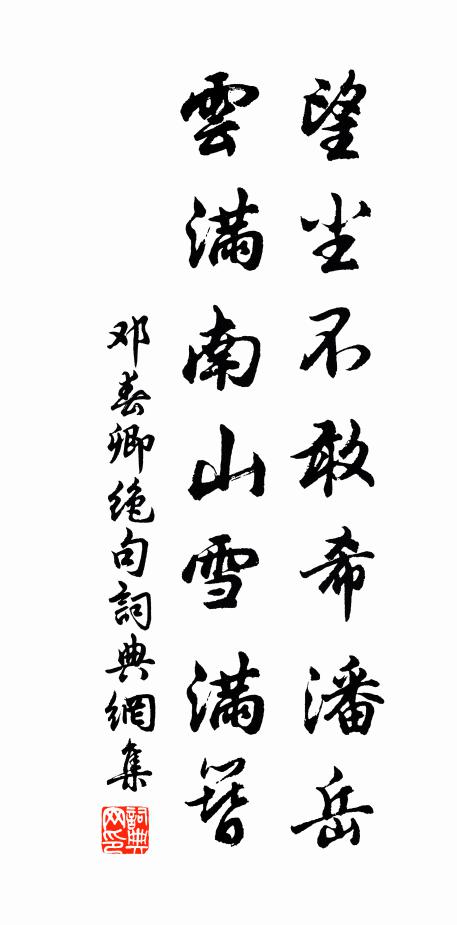 望尘不敢希潘岳
雲满南山雪满簪
邓春卿绝句詞典網集
詞典网印